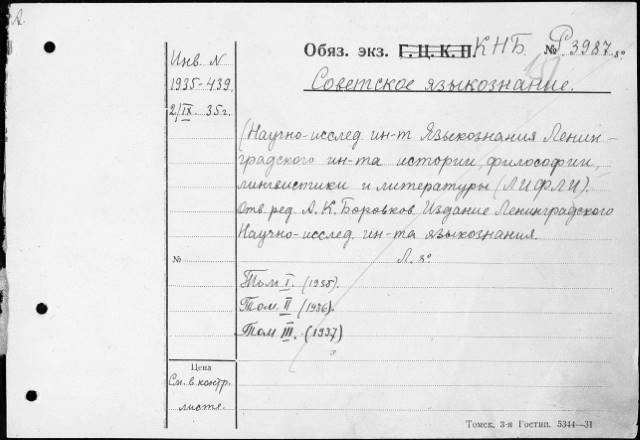 Инв. N
1935-439.
2/IX. 35г.
Обяз. экз. Г. Ц. К. П. КНБ. № Р 3987. 8°
Советское языкознание.
(Научно-исслед ин-т Языкознания Ленин-
градского ин-та истории, философии,
лингвистики и литературы (ЛИФЛИ).
Отв. ред. А. К. Боровков, Издание Ленинградского
Научно-исслед. ин-та языкознания.
№
Л. 8°
Том I. (1935).
Том. II (1936).
Том III. (1937)
Цена
См. в контр.
листе.
Томск, 3-я Гостип. 5344—31